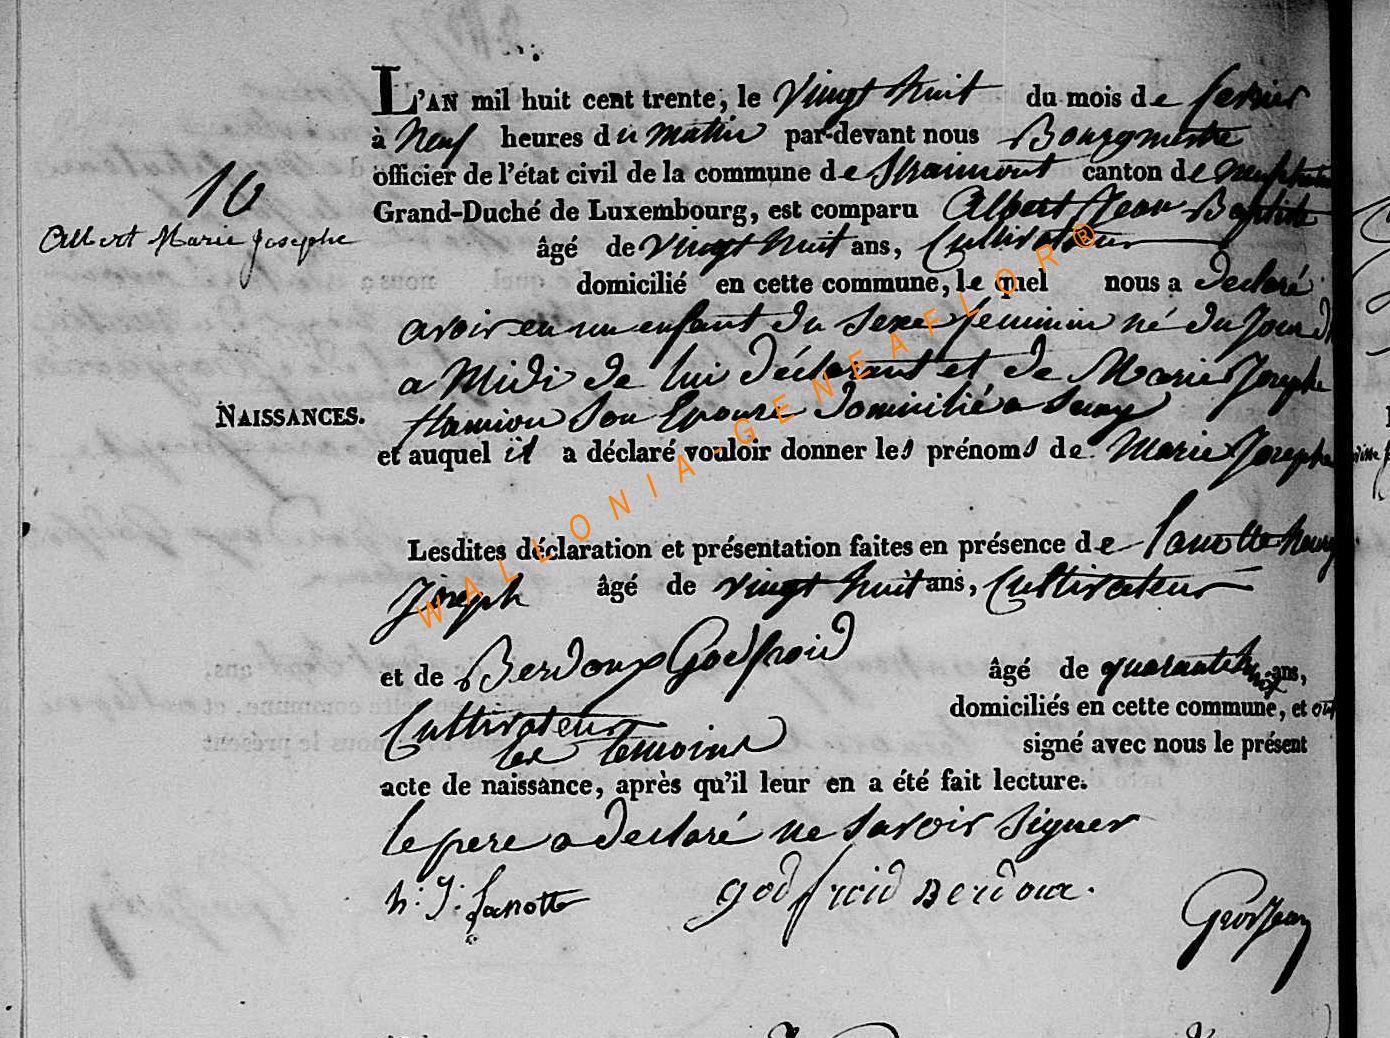 L'AN mil huit cent trente, le vingt huit du mois de fevrier
à Neuf heures du matin par-devant nous Bourgmestre
officier de l'état civil de la commune de Straimont canton de
Grand-Duché de Luxembourg, est comparu Albert Jean Baptiste
âgé de vingt huit ans, Cultivateur
domicilié en cette commune, le quel nous a declaré
avoir eu un enfant du sexe feminin né du jour
a Midi de lui déclarant et de Marie Josephe
son Epouse domicilié a
et auquel il a déclaré vouloir donner les prénoms de Marie Josephe
16
Albert Marie Josephe
NAISSANCES.
Lesdites déclaration et présentation faites en présence de Lanotte henry
Joseph âgé de vingt huit ans, Cultivateur
et de Berdoux Godfroid âgé de ans,
Cultivateur domiciliés en cette commune, et ont
les temoins signé avec nous le présent
acte de naissance, après qu'il leur en a été fait lecture.
le pere a declaré ne savoir signer
h: J: Lanotte godfroid Berdoux. Grosjean
WALLONIA-GENEAFLOR®